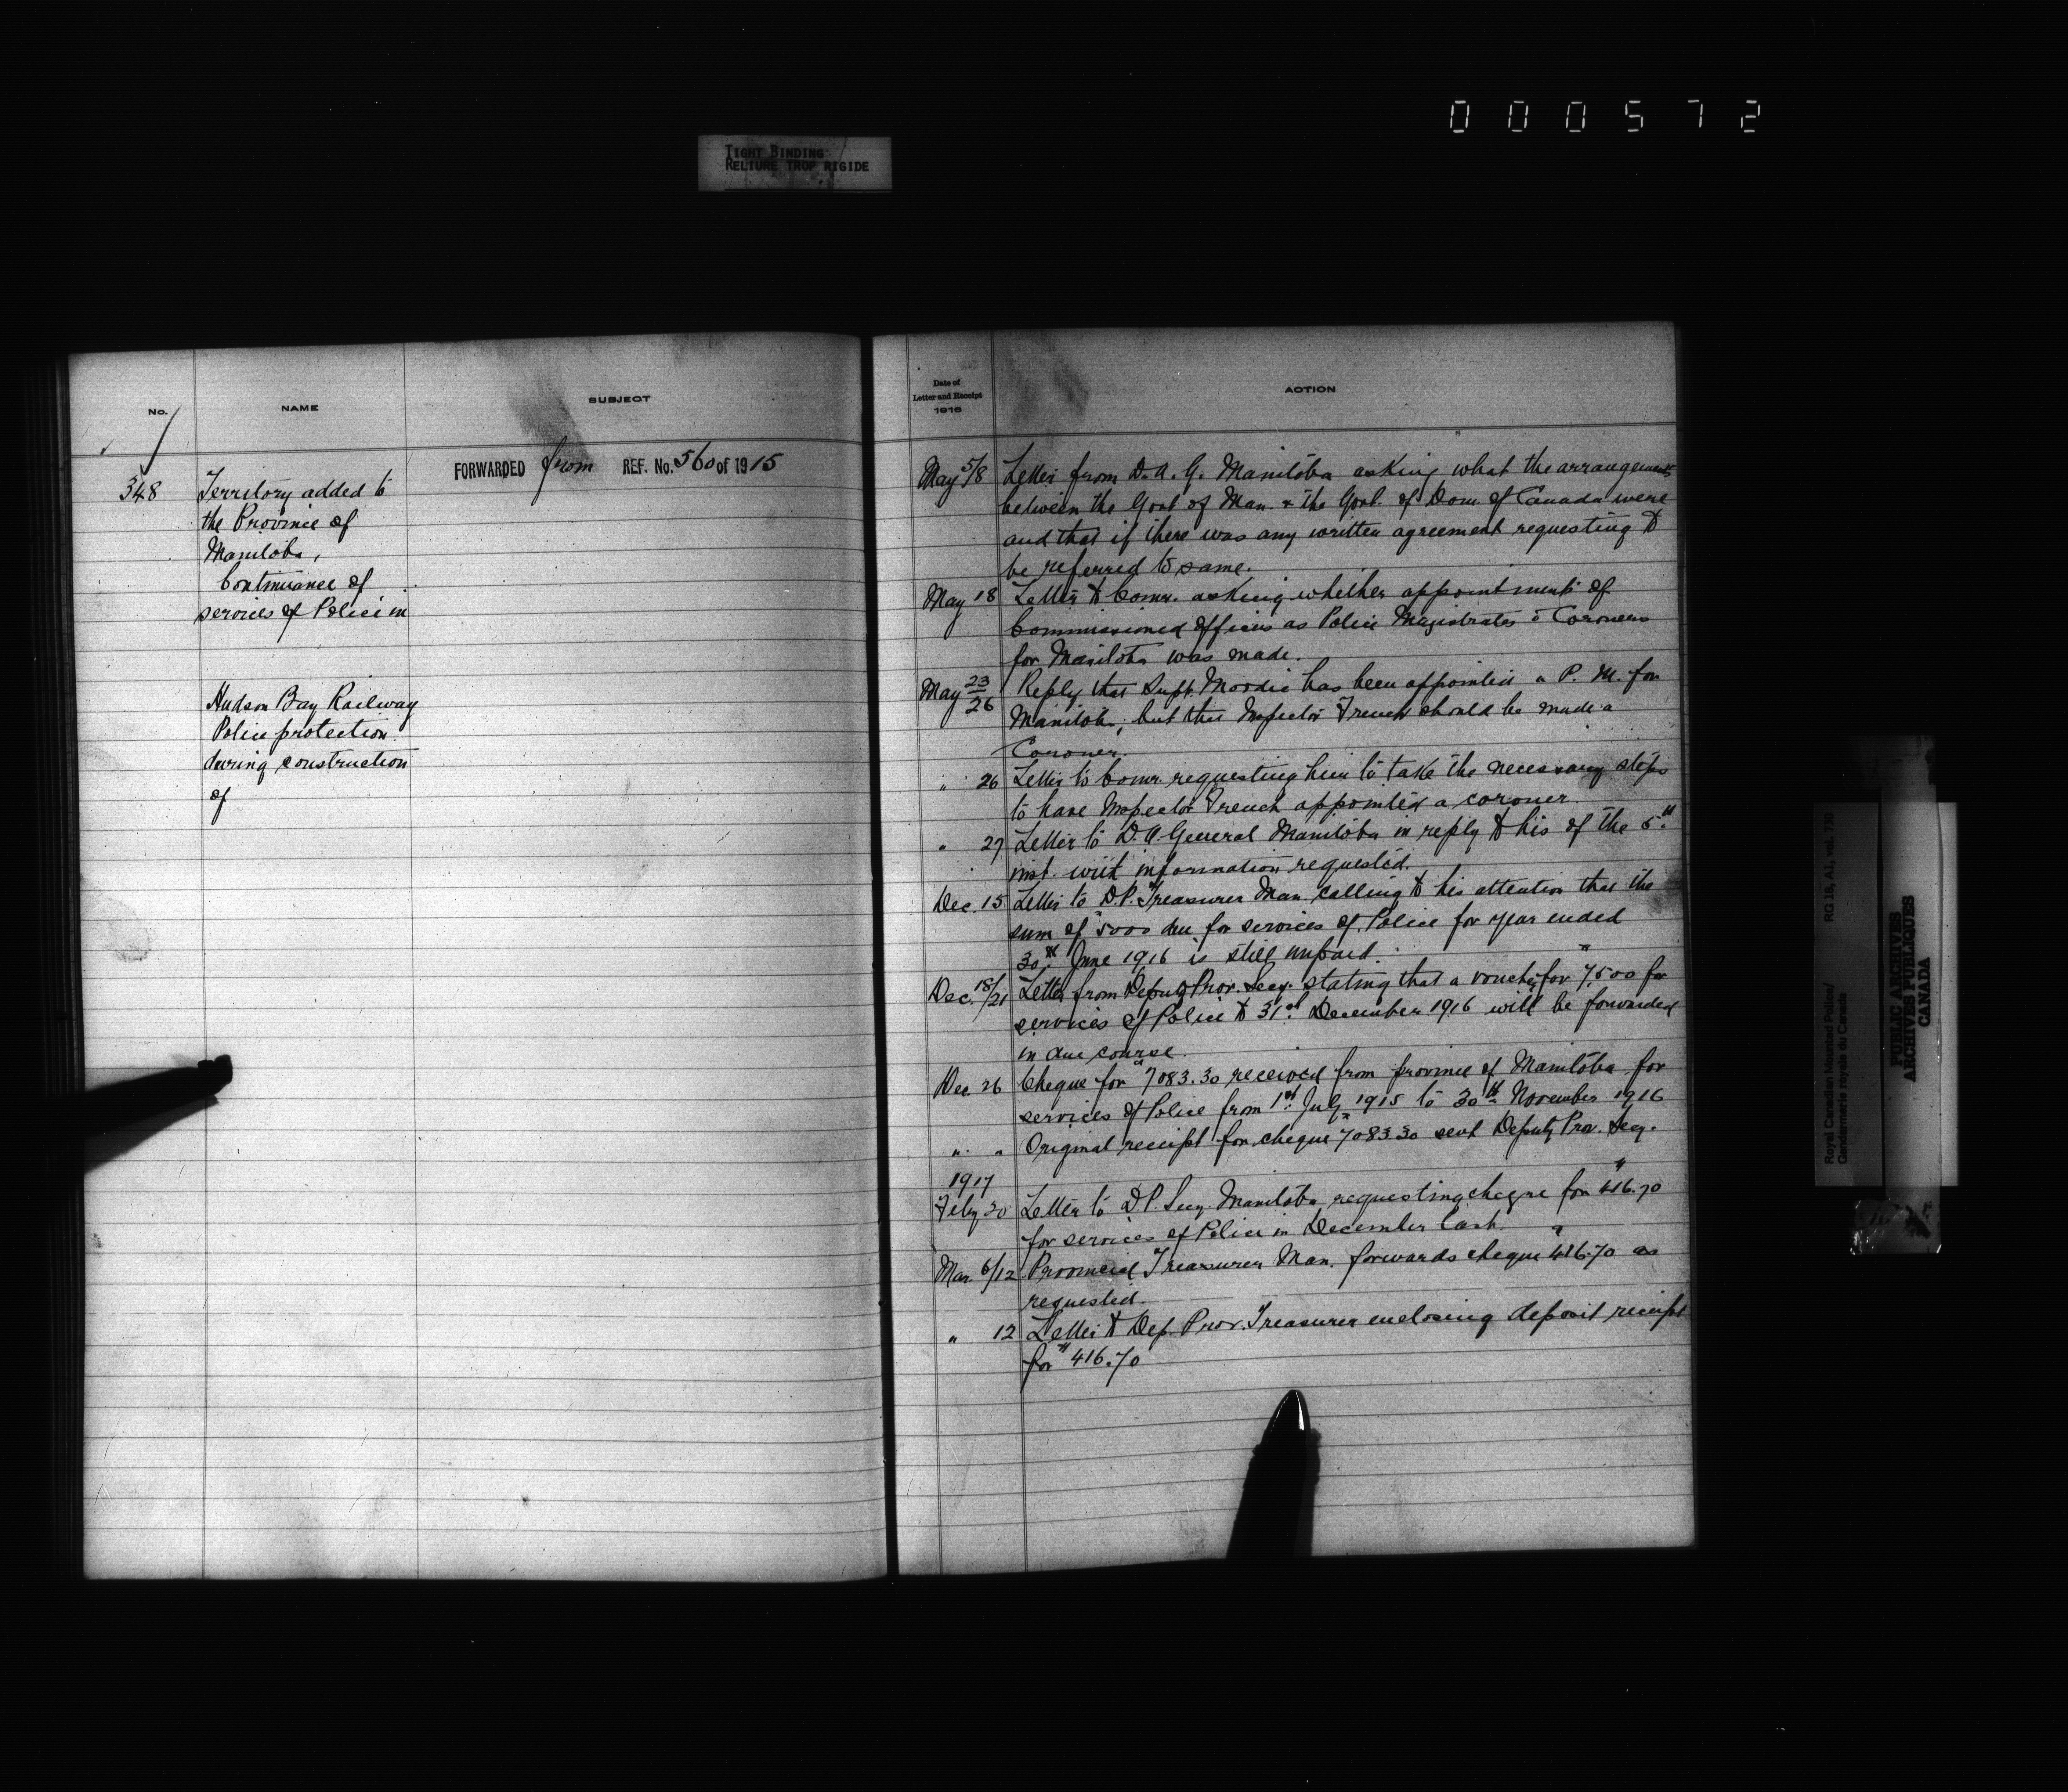 000572
TIGHT BINDING
RELIURE TROP RIGIDE
No.
NAME
SUBJECT
348
Territory added to
the Province of
Manitoba,
Continuance of
services of Police in
Hudson Bay Railway
Police protection
during construction
of
FORWARDED from REF. No. 560 of 1915
Date of
Letter and Receipt
1916
ACTION
May 5/8 Letter from D.A.G. Manitoba asking what the arrangements
between the Govt of Man. & the Govt. of Dom. of Canada were
and that if there was any written agreement requesting to
be referred to same.
May 18 Letter to Comr. asking whether appointments of
Commissioned Officers as Police Magistrates & Coroners
for Manitoba was made.
May 23/26 Reply that Supt. Moodie has been appointed a P. M. for
Manitoba, but that Inspector French should be made a
Coroner.
" 26 Letter to Comr. requesting him to take the necessary steps
to have Inspector French appointed a coroner.
" 27 Letter to D.A. General Manitoba in reply to his of the 5th
inst. with information requested.
Dec. 15 Letter to D.P. Treasurer Man. calling to his attention that the
sum of $5000 due for services of Police for year ended
30th June 1916 is still unpaid.
Dec. 18/21 Letter from Deputy Prov. Secy. stating that a voucher for $7,500 for
services of Police to 31st December 1916 will be forwarded
in due course.
Dec. 26 Cheque for $7083.30 received from province of Manitoba for
services of Police from 1st July 1915 to 30th November 1916
" " Original receipt for cheque $7083.30 sent Deputy Prov. Secy.
1917
Feby 20 Letter to D.P. Secy. Manitoba requesting cheque for $416.70
for services of Police in December last.
Mar. 6/12 Provincial Treasurer Man. forwards cheque $416.70 as
requested.
" 12 Letter to Dep. Prov. Treasurer enclosing deposit receipt
for $416.70
Royal Canadian Mounted Police/
Gendarmerie royale du Canada
RG 18, A1, vol. 770
PUBLIC ARCHIVES
ARCHIVES PUBLIQUES
CANADA